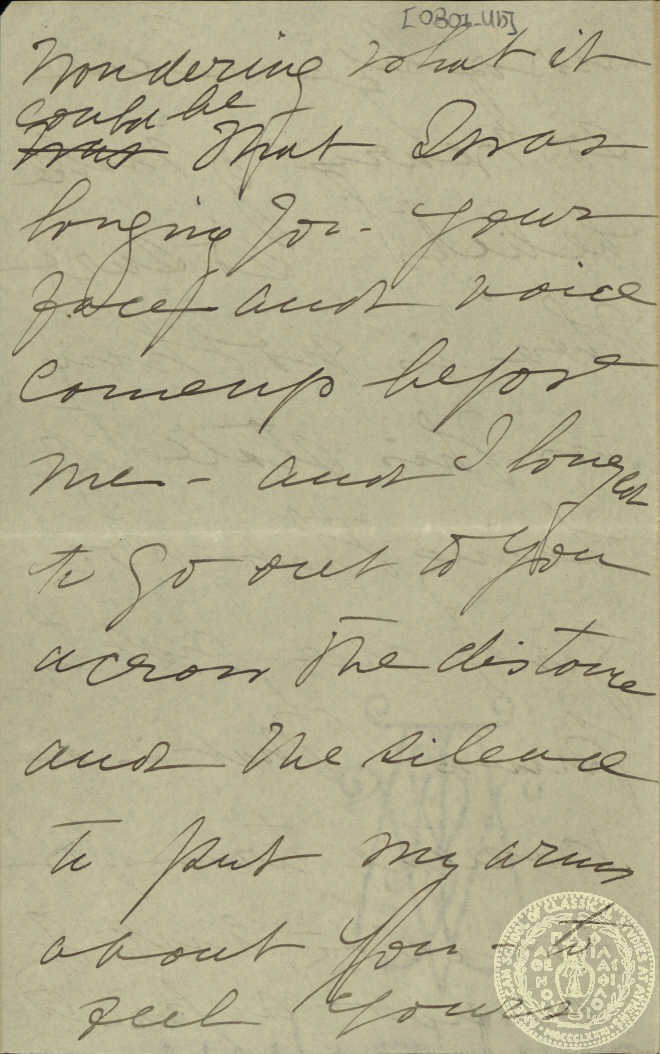 wondering what it
could be
was that I was
longing for - your
face and voice
come up before
me - and I longed
to go out to you
across the distance
and the silence
to put my arms
about you - to
feel yours